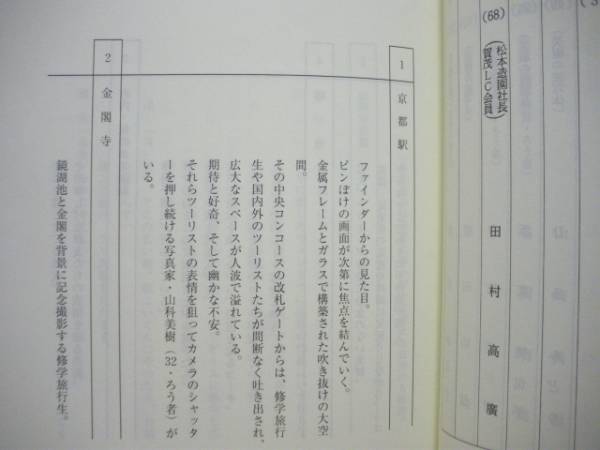 (68)
(松本造園社長
賀茂LC会員)
田村高廣
1 京都駅
ファインダーからの見た目。
ピンぼけの画面が次第に焦点を結んでいく。
金属フレームとガラスで構築された吹き抜けの大空
間。
その中央コンコースの改札ゲートからは、修学旅行
生や国内外のツーリストたちが間断なく吐き出され、
広大なスペースが人波で溢れている。
期待と好奇、そして幽かな不安。
それらツーリストの表情を狙ってカメラのシャッタ
ーを押し続ける写真家・山科美樹(32・ろう者)が
いる。
2 金閣寺
鏡湖池と金閣を背景に記念撮影する修学旅行生。